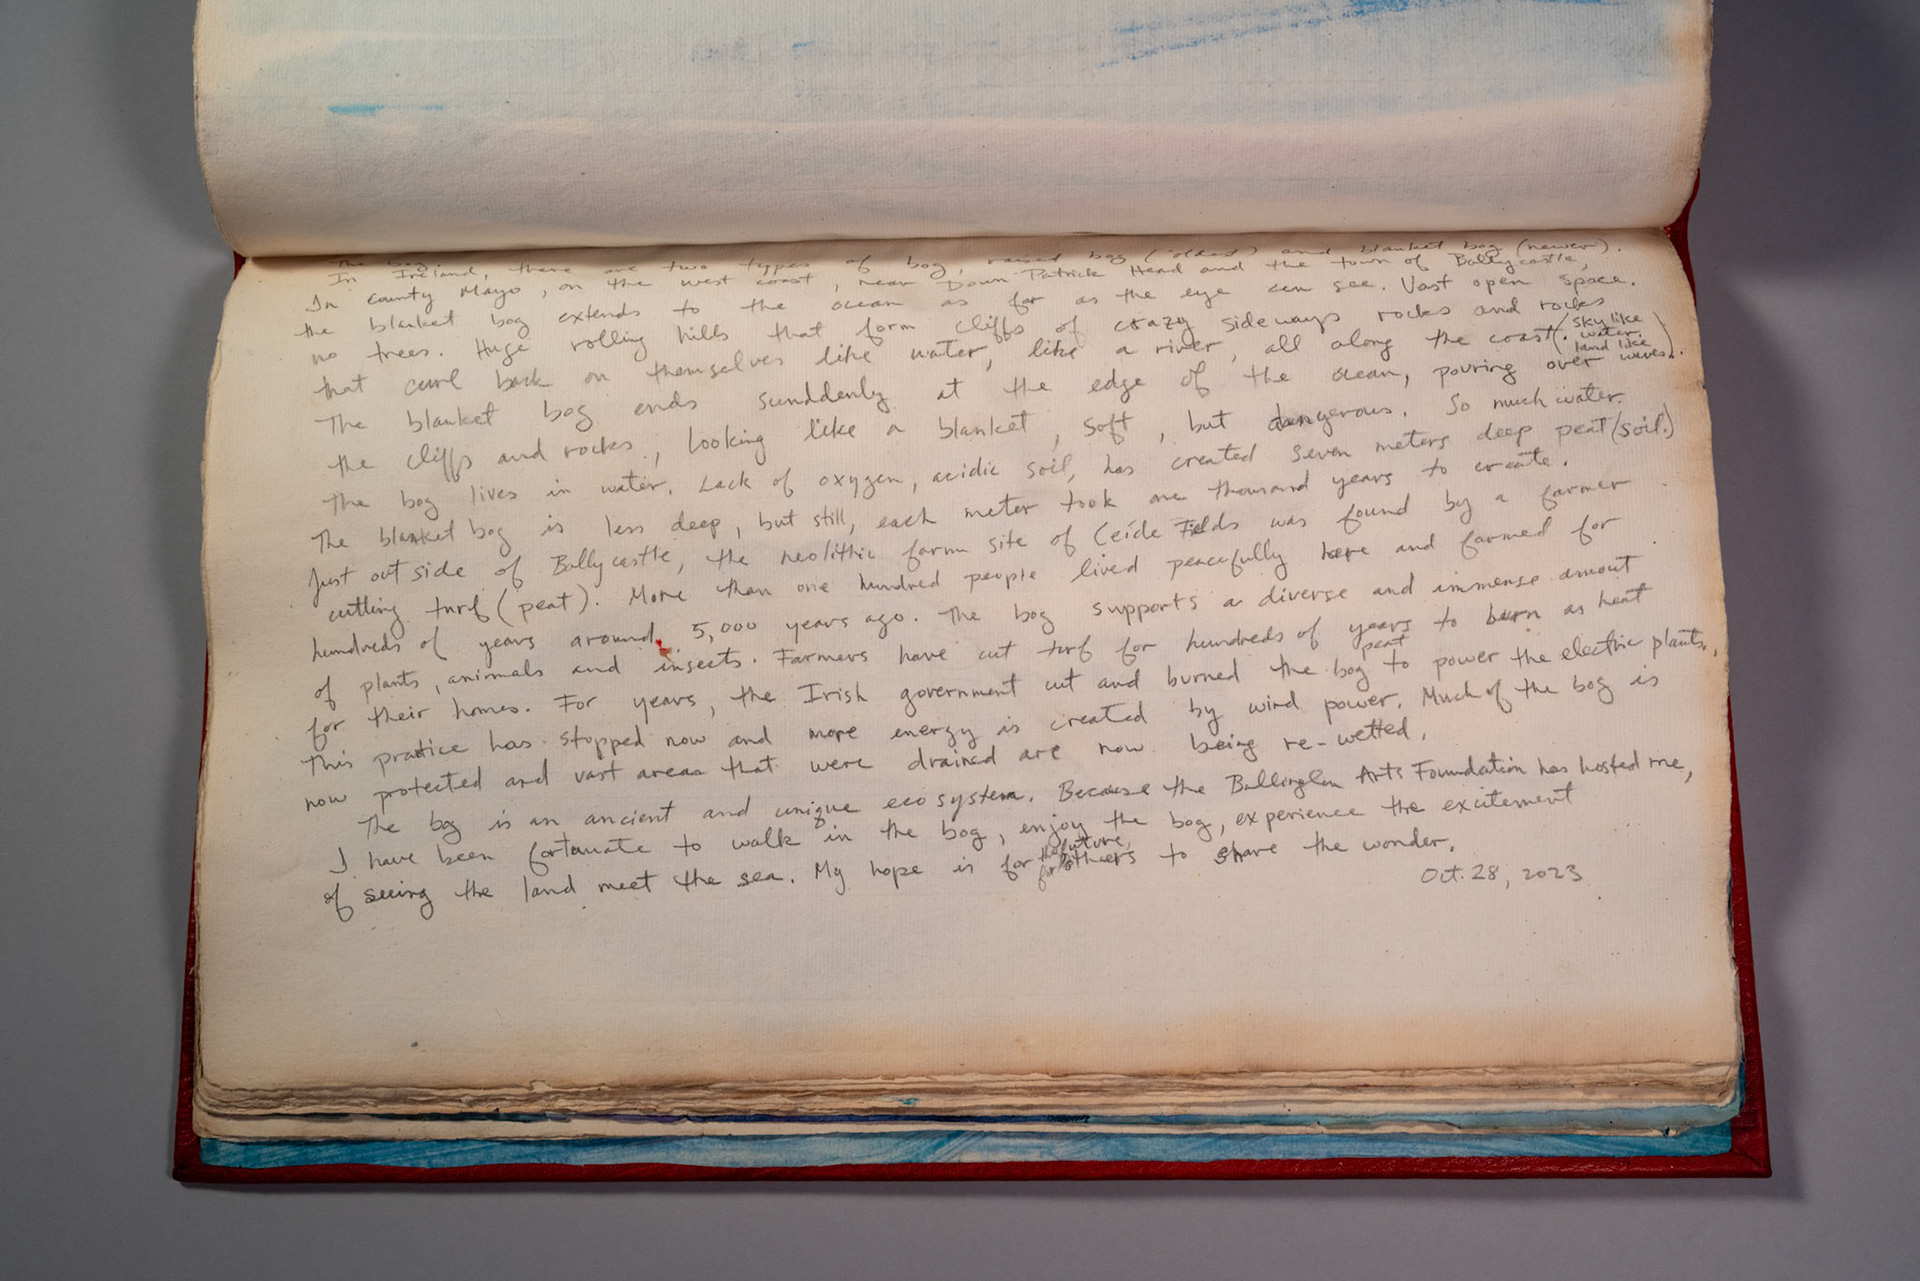 The bog.
In Ireland, there are two types of bog, raised bog (oldest) and blanket bog (newer).
In County Mayo, on the west coast, near Down Patrick Head and the town of Ballycastle,
the blanket bog extends to the ocean as far as the eye can see. Vast open space.
no trees. Huge rolling hills that form cliffs of crazy sideways rocks and rocks
that curl back on themselves like water, like a river, all along the coast. (sky like water. land like waves).
The blanket bog ends sunddenly at the edge of the ocean, pouring over
the cliffs and rocks, looking like a blanket, soft, but dangerous. So much water.
The bog lives in water. Lack of oxygen, acidic soil, has created seven meters deep peat (soil.)
The blanket bog is less deep, but still, each meter took one thousand years to create.
Just outside of Ballycastle, the neolithic farm site of Ceíde Fields was found by a farmer
cutting turf (peat). More than one hundred people lived peacefully here and farmed for
hundreds of years around 5,000 years ago. The bog supports a diverse and immense amout
of plants, animals and insects. Farmers have cut turf for hundreds of years to burn as heat
for their homes. For years, the Irish government cut and burned the bog peat to power the electric plants.
This practice has stopped now and more energy is created by wind power. Much of the bog is
now protected and vast areas that were drained are now being re-wetted.
The bog is an ancient and unique ecosystem. Because the Ballinglen Arts Foundation has hosted me,
I have been fortunate to walk in the bog, enjoy the bog, experience the excitement
of seeing the land meet the sea. My hope is for the future, for others to share the wonder.
Oct. 28, 2023